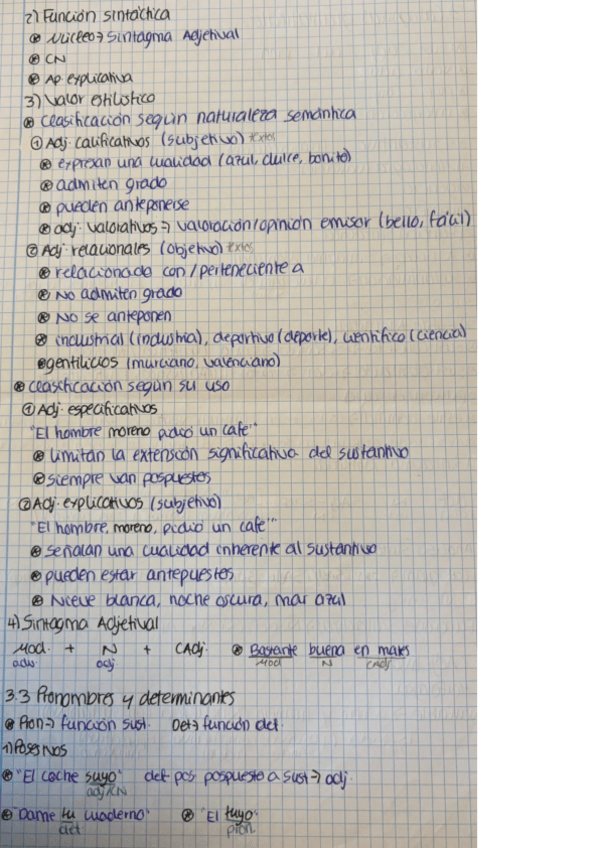 2) Función sintáctica
⊛ Núcleo → Sintagma Adjetival
⊛ CN
⊛ Ap. explicativa
3) Valor estilístico
⊛ Clasificación según naturaleza semántica
① Adj. calificativos (subjetivo) textos
⊛ expresan una cualidad (azul, dulce, bonito)
⊛ admiten grado
⊛ pueden anteponerse
⊛ adj. valorativos → valoración/opinión emisor (bello, fácil)
② Adj. relacionales (objetivo) textos
⊛ relacionado con / perteneciente a
⊛ No admiten grado
⊛ No se anteponen
⊛ industrial (industria), deportivo (deporte), científico (ciencia)
⊛ gentilicios (murciano, valenciano)
⊛ Clasificación según su uso
① Adj. especificativos
"El hombre moreno pidió un café"
⊛ limitan la extensión significativa del sustantivo
⊛ siempre van pospuestos
② Adj. explicativos (subjetivo)
"El hombre, moreno, pidió un café"
⊛ señalan una cualidad inherente al sustantivo
⊛ pueden estar antepuestos
⊛ Nieve blanca, noche oscura, mar azul
4) Sintagma Adjetival
Mod. + N + CAdj. ⊛ Bastante buena en mates
adv. adj Mod N CAdj
3.3 Pronombres y determinantes
⊛ Pron → función sust. Det → función det.
1) Posesivos
⊛ "El coche suyo" det pos pospuesto a sust → adj.
adj/CN
⊛ "Dame tu cuaderno" ⊛ "El tuyo"
det pron